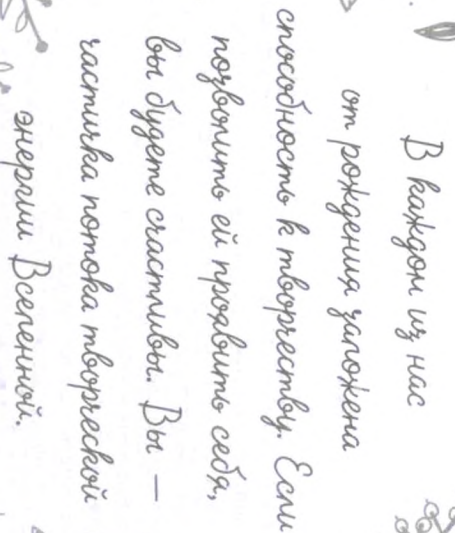 В каждом из нас
от рождения заложена
способность к творчеству. Если
позволить ей проявить себя,
вы будете счастливы. Вы —
частичка потока творческой
энергии Вселенной.